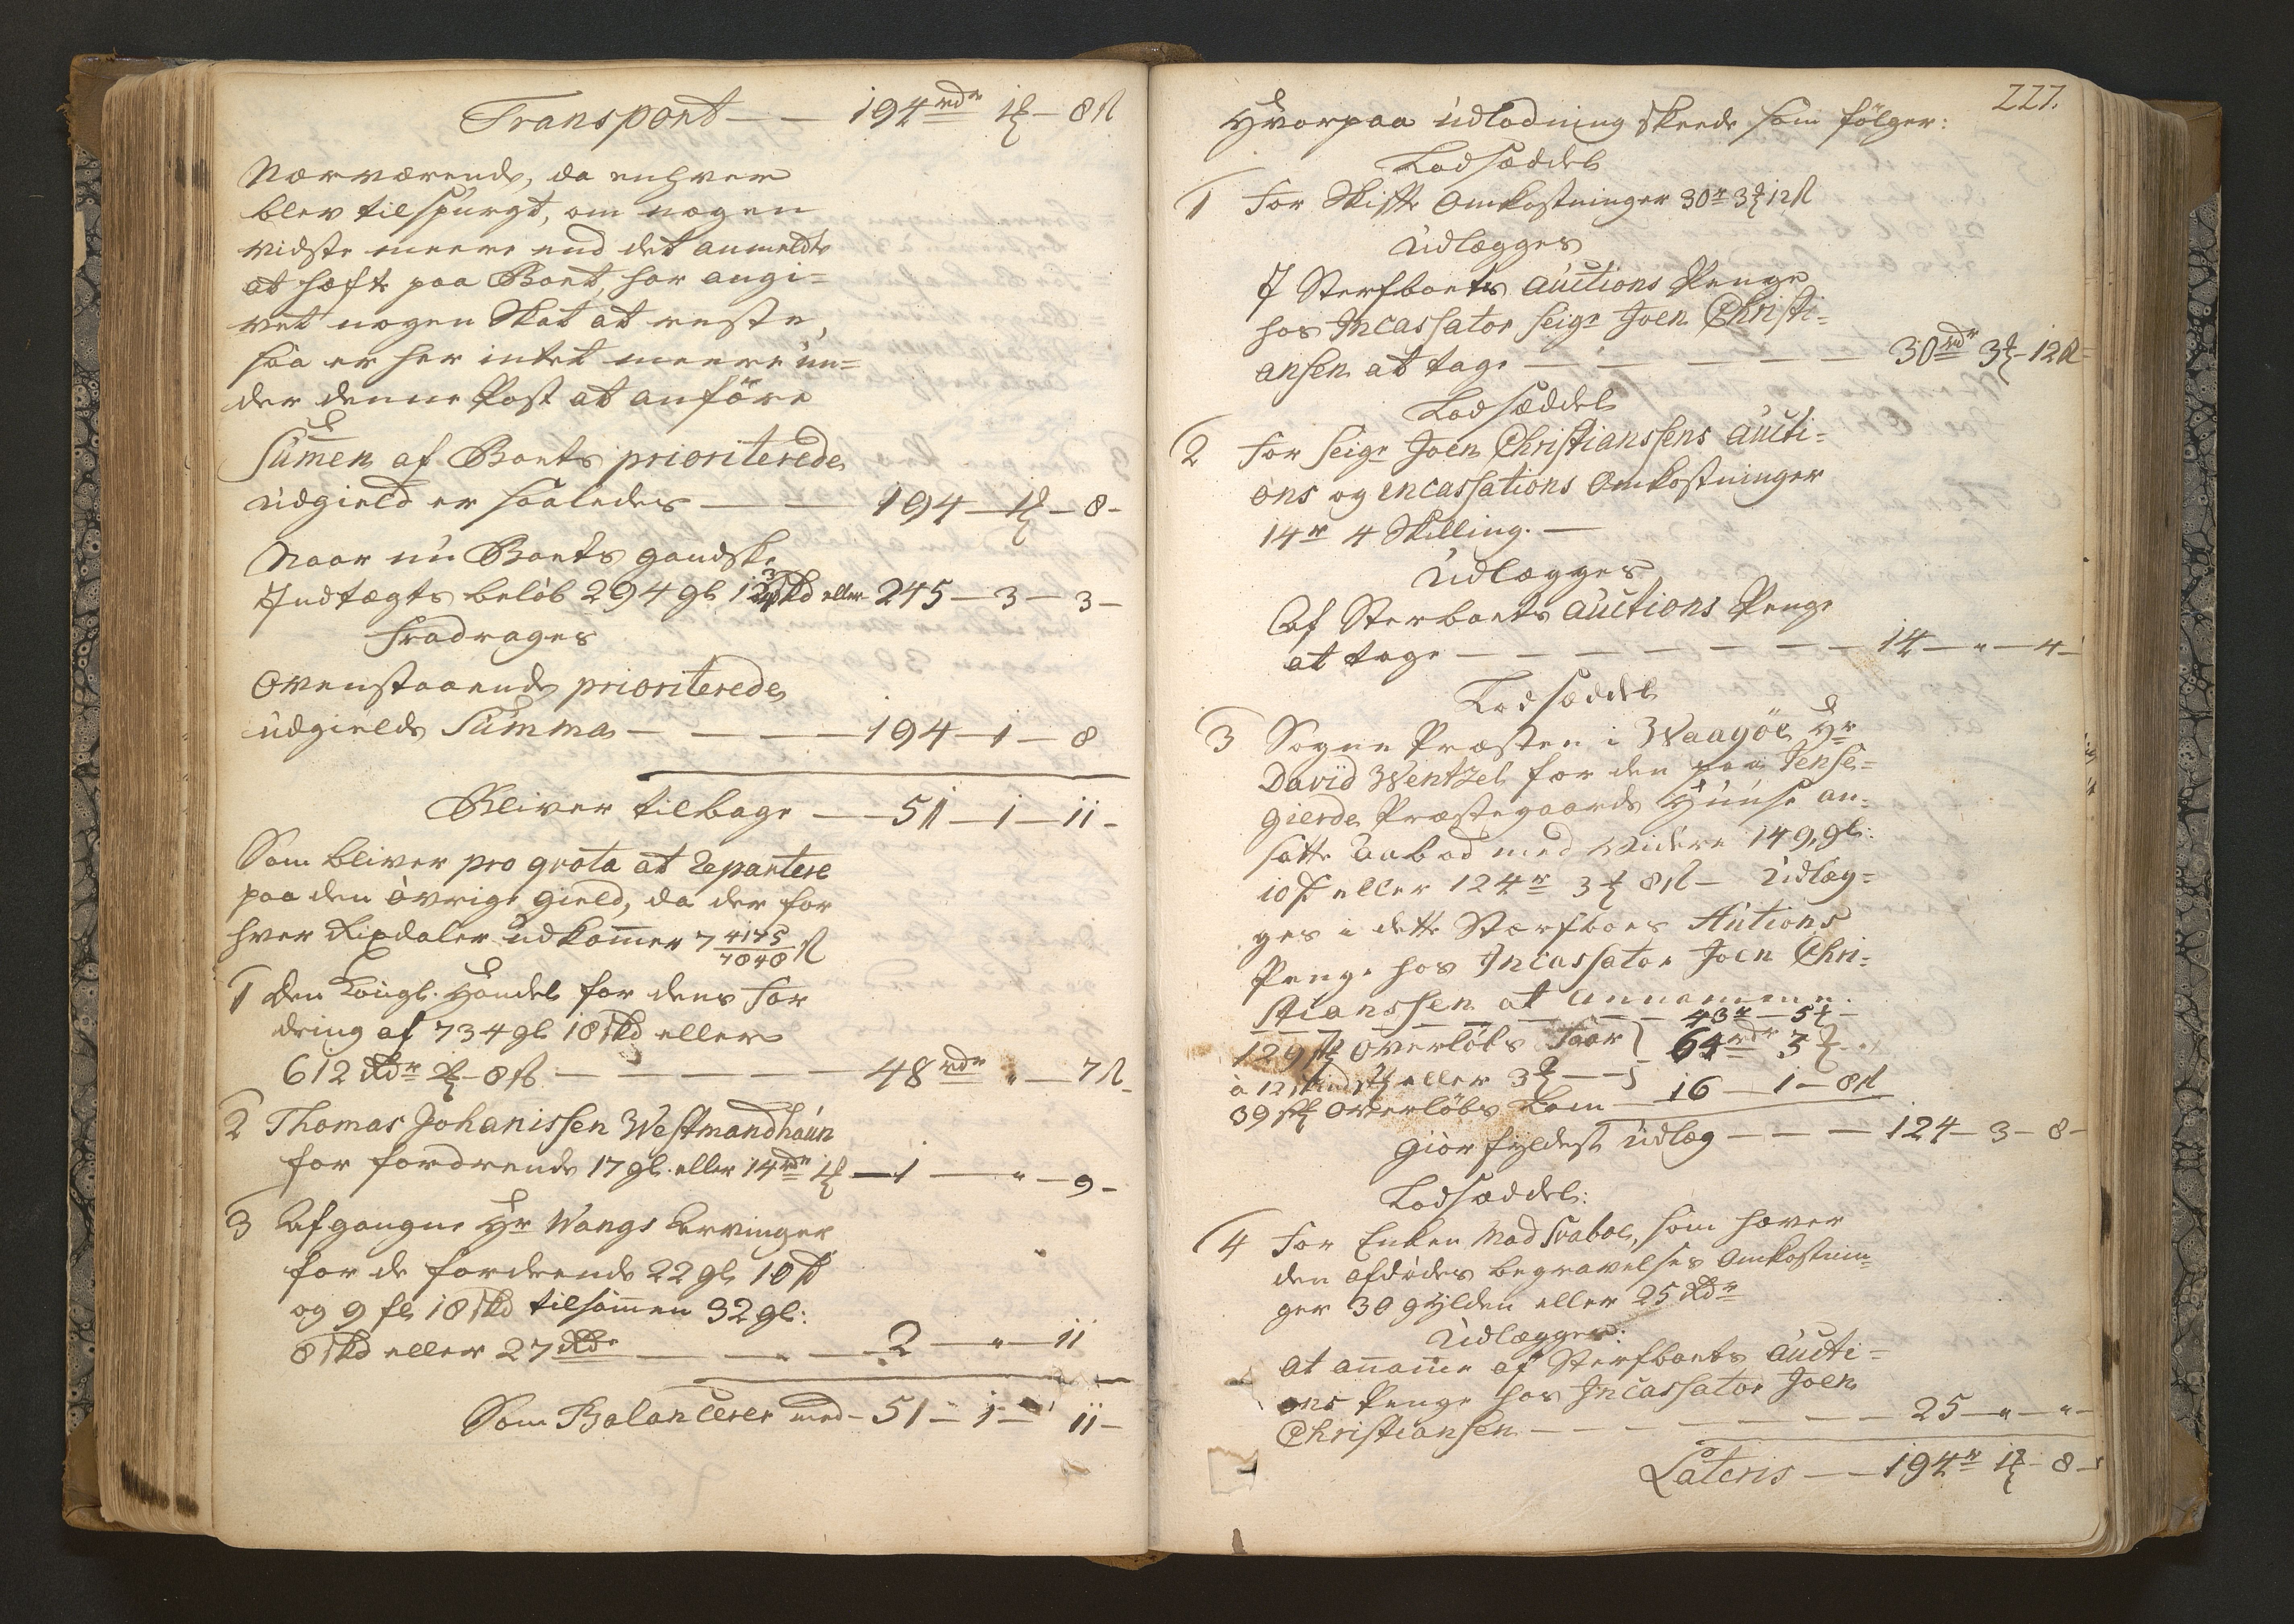 Transport — — 194 rdr 1 ℔ — 8 ß
Nærværende, da enhver
blev tilspurgt, om nogen
vidste meere end det anmeldte
at hæfte paa Boet, har angi=
vet nogen Skat at reste,
saa er her intet meere ün=
der denne Post at anföre
Summen af Boets prioriterede
Udgield er saaledes — — 194 — 1 ℔ — 8 -
Naar nü Boets gandske
Indtægts beløb 294 gl eller 245 — 3 — 3 —
fradrages
Ovenstaaende prioriterede
udgields Summa — — — — 194 — 1 — 8
Bliver tilbage — — 51 — 1 — 11 -
Som bliver pro qvota at repartere
paa den övrige Gield, da der for
hver Rixdaler udkom̄er 7 4175/7848 ß
1 Den Kongl. Handel for dens For
dring af 734 gl 18 skd eller
612 Rdr 2 ℔ - 8 ß — — — — — 48 rdr " — 7 ß
2 Thomas Johanissen Westmandhaün
for fordrende 17 gl. eller 14 rdr 1 ℔ — 1 — " — 9 -
3 Afgangne Hr Wangs Arvinger
for de fordrende 22 gl 10 s
og 9 gl 18 skd tilsam̄en 32 gl:
8 skd eller 27 Rdr — — — — 2 — " — 11
Som Balancerer med - 51 — 1 — 11 -
227.
Hvorpaa üdlodning skeede som følger:
Lodsæddel
1 For Skifte Omkostninger 30 r 3 ℔ 12 ß
Udlægges
I Sterfboets Auctions Penge
hos Incassator Seigr Joen Christi=
ansen at tage — — — — — 30 rdr 3 ℔ - 12 ß
Lodsæddel
2 For Seigr Joen Christianssens Aucti=
ons og Incassations Omkostninger
14 r 4 Skilling. —
Udlægges
Af Sterboets Auctions Penge
at tage — — — — — — — 14 — " — 4 —
Lodsæddel
3 Sogne Præsten i Waagöe Hr
David Wentzel for den paa Jense=
gierde Præstegaards Hüüse an=
satte Aabod med videre 149, gl:
10 s eller 124 r 3 ℔ 8 ß — Udlæg=
ges i dette Sterfboes Auctions
Penge hos Incassator Joen Chri=
stianssen at annamme.
— — — — 43 r — 5 ℔ —
129 st Overløbs Faar } 64 rdr 3 ℔
à 12 skind st eller 3 ℔ — —
39 st Overløbs Lam — 16 — 1 — 8 ß
Giør fyldest Udlæg — — — 124 — 3 — 8 —
Lodsæddel:
4 For Enken Mad Svaboe, som haver
den afdödes begravelses Omkostnin=
ger 30 gylden eller 25 Rdr
Udlægges:
At an̄am̄e af Sterfboets Aucti=
ons Penge hos Incassator Joen
Christiansen — — — — — — 25 — " — " —
Lateris — — 194 r 1 ℔ — 8 —